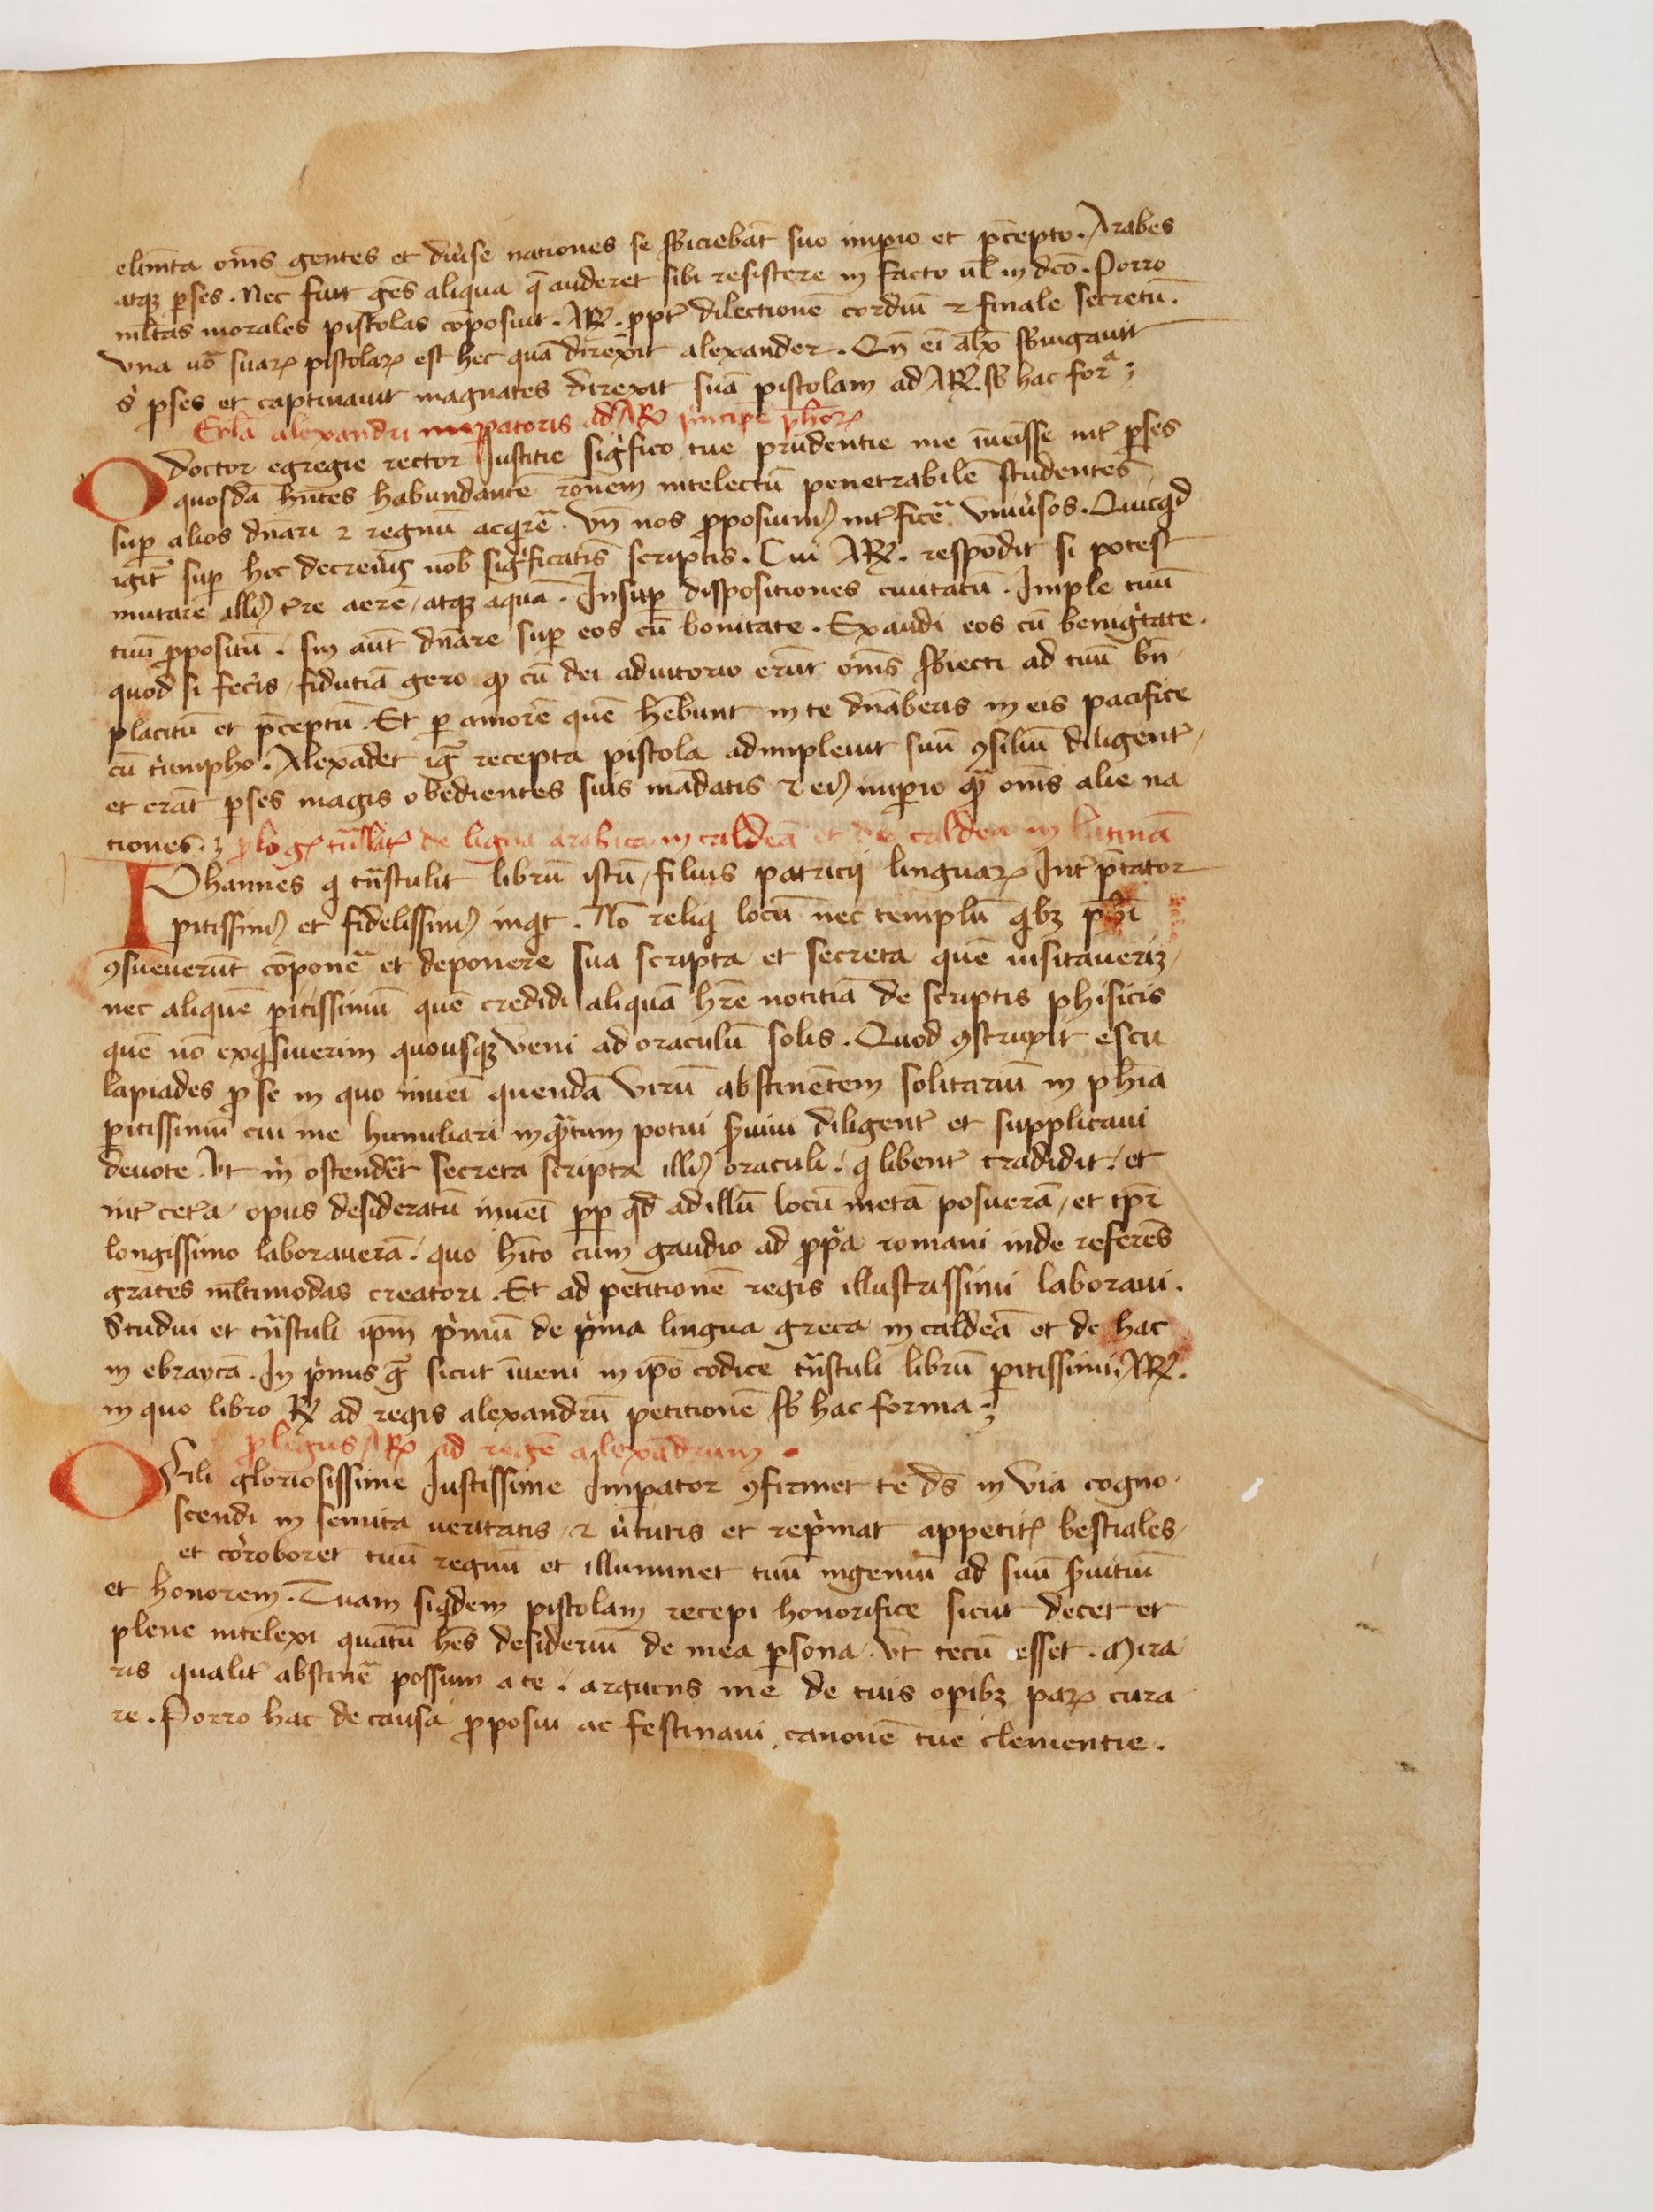 elimta om̄s gentes et diuˀse nationes se sb̄iciebāt suo imꝑio et p̄cepto. Arabes
atqꝫ ꝑses. Nec fuit gēs aliqua q̄ auderet sibi resistere in facto ul̄ in dc̄o. Porro
ml̄tas morales pistolas cōposuit. AR̄. ꝓpt᷑ dilectionē cordiū ⁊ finale secretū.
vna uō suaꝝ pistolaꝝ est hec quā direxit alexander. Qn̄ ei sb̄iugauit
ꝑses et captiuauit magnates direxit suā pistolam ad AR̄. sb̄ hac forᵃ ꝫ
Epl̄a alexandri imꝑatoris ad AR̄ principē ph̄oꝝ
O doctor egregie rector Iustitie sigˀfico tue prudentie me īueīsse int᷑ ꝑses
quosdā hn̄tes habundantē rōnem intelectū penetrabilē studentes
suꝑ alios dn̄ari ⁊ regnū acqr̄e. vn̄ nos ꝓposuimꝰ int᷑ficē vniuˀsos. Quicqͥd
igit᷑ suꝑ hoc decreuˀis nob̄ sigˀficatis scriptis. Cui AR̄. respōdit si potest
mutare illiꝰ t᷑re aerē / atqꝫ aquā. Insuꝑ dispositiones ciuitatū. Imple tuū
tuū ꝓpositū. sin aūt dn̄are suꝑ eos cū bonitate. Exaudi eos cū benigˀtate.
quod si fecˀis / fidutiā gero ꝙ cū dei adiutorio erūt om̄s sb̄iecti ad tuū bn̄
placitū et p̄ceptū. Et ꝑ amorē quē hēbunt in te dn̄aberis in eis pacifice
cū tˀumpho. Alexādeꝛ igͣ recepta pistola adimpleuit suū ꝯsiliū diligent᷑ /
et erāt ꝑses magis obedientes suis mādatis ⁊ eiꝰ imꝑio qͣ om̄s alie na
tiones. ꝫ ꝓlogꝰ de ligua arabica in caldeā et de caldea in latinā
Iohannes qͥ tn̄stulit librū istū / filius patricij linguaꝝ Int᷑p̄tator
ꝑitissimꝰ et fidelissimꝰ inqͥt. Nō reliqͥ locū nec templū qͥbꝫ ph̄i
ꝯsueuerūt cōponē et deponere sua scripta et secreta quē uisitauerī /
nec aliquē ꝑitissimū quē credidi aliquā hr̄e notitiā de scriptis phisicis
quē nō exqͥsiuerim quousqꝫ veni ad oraculū solis. Quod ꝯstruxit escu
lapiades ꝓ se in quo inueī quendā virū abstinētem solitariū in phīa
ꝑitissimū cui me humiliari inqͣtum potui ẜuiui diligent᷑ et supplicaui
deuote. vt mˀ ostendēt secreta scripta illiꝰ oraculi / qͥ libent᷑ tradidit / et
int᷑ cet᷑a opus desideratū inueī ꝓp qd̄ ad illū locū metā posuerā / et tp̄r
longissimo laborauerā / quo hīto cum gaudio ad ꝓpˀa romaui inde referēs
grates ml̄timodas creatori. Et ad petitionē regis illustrissimi laboraui.
Studui et tn̄stuli ip̄m pˀmū de pˀma lingua greca in caldeā et de hac
in ebraycā. In pˀmus gͦ sicut īueni in ip̄o codice tn̄stuli librū ꝑitissimi AR̄.
in quo libro R̄ ad regis alexandrū petitionē sb̄ hac forma ꝫ
ꝓligus AR̄ ad regē alexādrum .
O Fili gloriosissime Iustissime Imꝑator ꝯfirmet te ds̄ in via cogno
scendi in semita ueritatis / ⁊ uˀtutis et repˀmat appetitꝰ bestiales /
et corˀoboret tuū regnū et illuminet tuū ingeniū ad suū ẜuitiū
et honorem. Tuam siqͥdem pistolam recepi honorifice sicut decet et
plene intelexi quātū hēs desideriū de mea ꝑsona vt tecū esset. Mira
ris qualit᷑ abstinē possum a te / arguens me de tuis oꝑibꝫ paꝝ cura
re. Porro hac de causa ꝓposui ac festinaui canonē tue clementie.